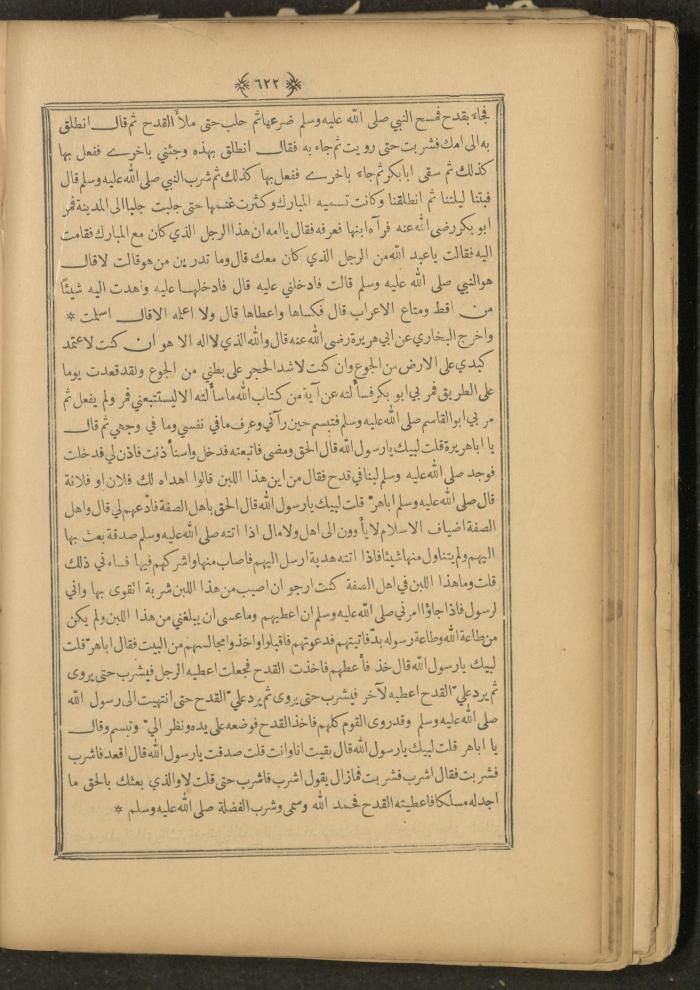 ٦٢٢
فجاء بقدح فمسح النبي صلى الله عليه وسلم ضرعها ثم حلب حتى ملأ القدح ثم قال انطلق
به الى امك فشربت حتى رويت ثم جاء به فقال انطلق بهذه وجئني باخرى ففعل بها
كذلك ثم سقى ابابكر ثم جاء باخرى ففعل بها كذلك ثم شرب النبي صلى الله عليه وسلم قال
فبتنا ليلتنا ثم انطلقنا وكانت تسميه المبارك وكثرت غنمها حتى جلبت جلبا الى المدينة فمر
ابو بكر رضى الله عنه فرآه ابنها فعرفه فقال يا امه ان هذا الرجل الذي كان مع المبارك فقامت
اليه فقالت ياعبد الله من الرجل الذي كان معك قال وما تدرين من هو قالت لا قال
هو النبي صلى الله عليه وسلم قالت فادخلني عليه قال فادخلها عليه واهدت اليه شيئاً
من اقط ومتاع الاعراب قال فكساها واعطاها قال ولا اعلمه الا قال اسلمت *
واخرج البخاري عن ابي هريرة رضى الله عنه قال والله الذي لا اله الا هو ان كنت لاعتمد
كبدي على الارض من الجوع وان كنت لاشد الحجر على بطني من الجوع ولقد قعدت يوما
على الطريق فمر بي ابو بكر فسألته عن آية من كتاب الله ما سألته الا ليستتبعني فمر ولم يفعل ثم
مر بي ابو القاسم صلى الله عليه وسلم فتبسم حين رآني وعرف ما في نفسي وما في وجهي ثم قال
يا اباهريرة قلت لبيك يارسول الله قال الحق ومضى فاتبعته فدخل واستأذنت فاذن لي فدخلت
فوجد صلى الله عليه وسلم لبنا في قدح فقال من اين هذا اللبن قالوا اهداه لك فلان او فلانة
قال صلى الله عليه وسلم اباهرّ قلت لبيك يارسول الله قال الحق باهل الصفة فادعهم لي قال واهل
الصفة اضياف الاسلام لا يأوون الى اهل ولا مال اذا اتته صلى الله عليه وسلم صدقة بعث بها
اليهم ولم يتناول منها شيئا فاذا اتته هدية ارسل اليهم فاصاب منها واشركهم فيها فساءني ذلك
قلت وما هذا اللبن في اهل الصفة كنت ارجو ان اصيب من هذا اللبن شربة اتقوى بها واني
لرسول فاذا جاؤا امرني صلى الله عليه وسلم ان اعطيهم وما عسى ان يبلغني من هذا اللبن ولم يكن
من طاعة الله وطاعة رسوله بدّ فاتيتهم فدعوتهم فاقبلوا واخذوا مجالسهم من البيت فقال اباهرّ قلت
لبيك يارسول الله قال خذ فأعطهم فاخذت القدح فجعلت اعطيه الرجل فيشرب حتى يروى
ثم يرد عليّ القدح اعطيه لآخر فيشرب حتى يروى ثم يرد عليّ القدح حتى انتهيت الى رسول الله
صلى الله عليه وسلم وقد روى القوم كلهم فاخذ القدح فوضعه على يده ونظر اليّ وتبسم وقال
يا اباهر قلت لبيك يارسول الله قال بقيت انا وانت قلت صدقت يارسول الله قال اقعد فاشرب
فشربت فقال اشرب فشربت فمازال يقول اشرب فاشرب حتى قلت لا والذي بعثك بالحق ما
اجد له مسلكا فاعطيته القدح فحمد الله وسمى وشرب الفضلة صلى الله عليه وسلم *